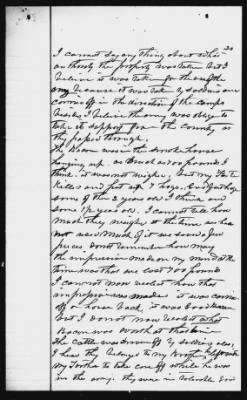 I cannot say any thing about what
authority the property was taken but I
believe it was taken for the use of the
army because it was taken by soldiers and
carried off in the direction of the camps
Besides I believe the army was oblige to
take its support from the country as
they passed through.
The Bacon was in the smoke house
hanging up. as much as 700 pounds I
think. it was not weighed, but my Father
killed and put up 7 hogs. Good part hogs
some of the 2 years old I think and
some 1½ years old. I cannot tell how
much they weighed at the time nor how
not used Much of it was sound a few
pieces. do not remember how many
the impression made on my mind at the
time was that we lost 700 pounds
I cannot now recollect how that
impression was made. it was carried
off on horse back, it was good bacon
but I do not now recollect what
Bacon was worth at that time
The cattle was driven off by soldiers also,
I had they belonged to my Brother he left with
my Father to take care off while he was
in the army. they were in tolerable good